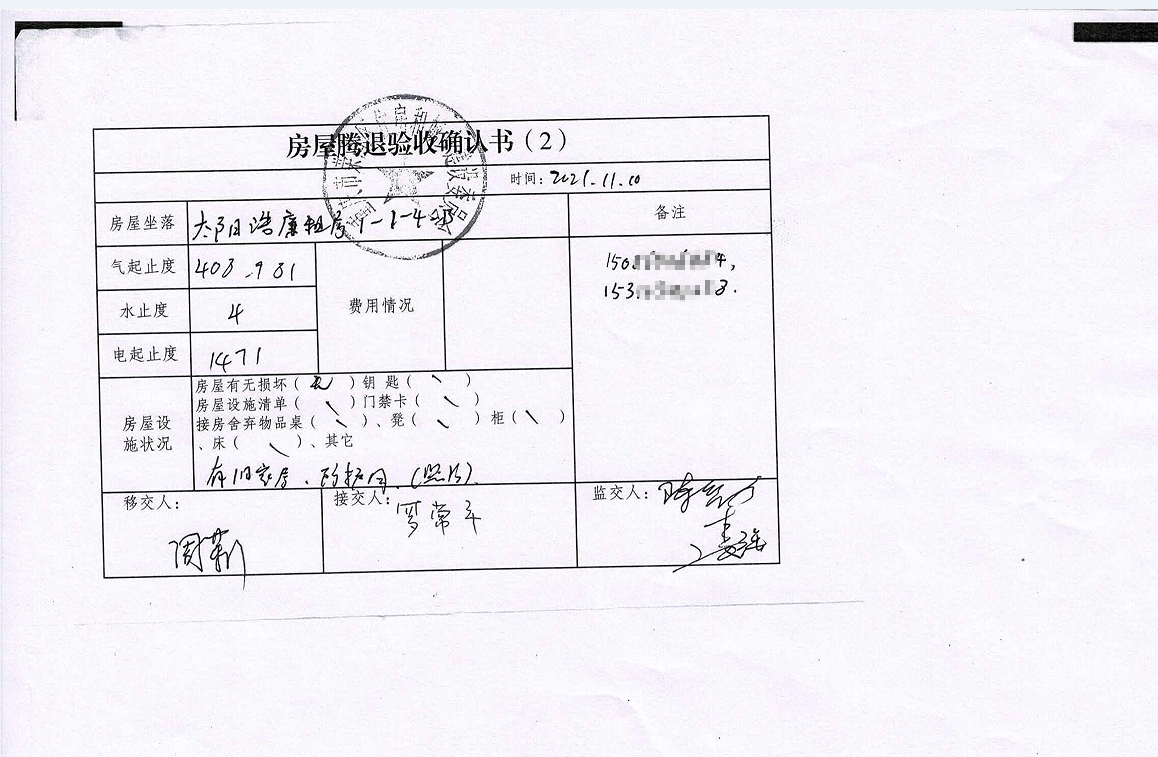 房屋腾退验收确认书（2）
时间：2021.11.10
房屋坐落 太阳浩廉租房1-1-4 备注
气起止度 403.981 费用情况
水止度 4
电起止度 1471
150 4,
153. 3.
房屋设施状况
房屋有无损坏（无）钥匙（\）
房屋设施清单（\）门禁卡（\）
接房舍弃物品桌（\）、凳（\）柜（\）
、床（\）、其它
有旧家具、防护网.（照片）.
移交人： 接交人： 监交人：